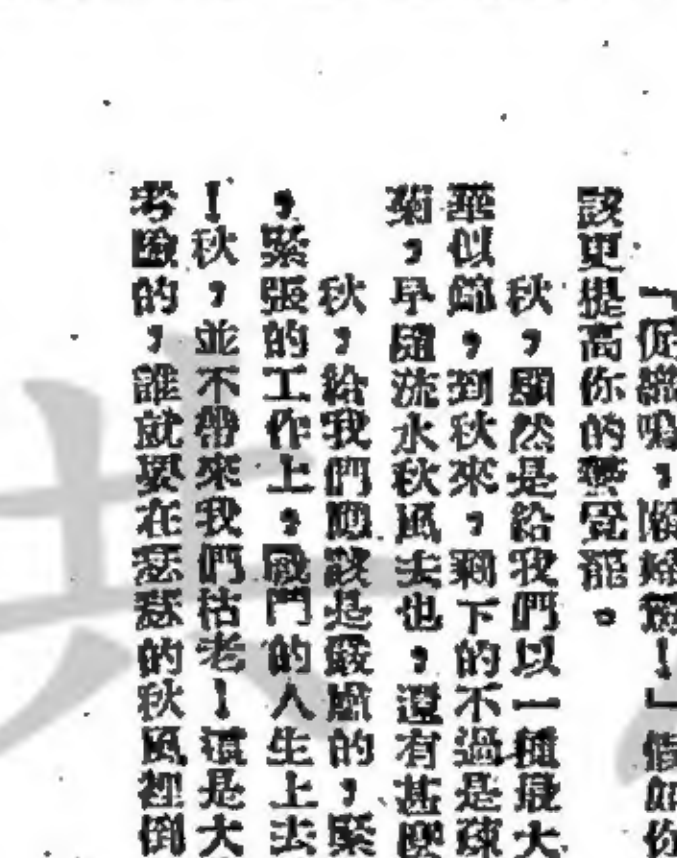 「促織鳴,懶婦驚!」假如你
該更提高你的警覺罷。
秋,顯然是給我們以一種最大
華似錦,到秋來,剩下的不過是疎
菊,早隨流水秋風去也,還有甚麼
秋,給我們應該是嚴肅的,緊
,緊張的工作上,戰鬥的人生上去
!秋,並不帶來我們枯老!這是大
考驗的,誰就要在瑟瑟的秋風裡倒
共